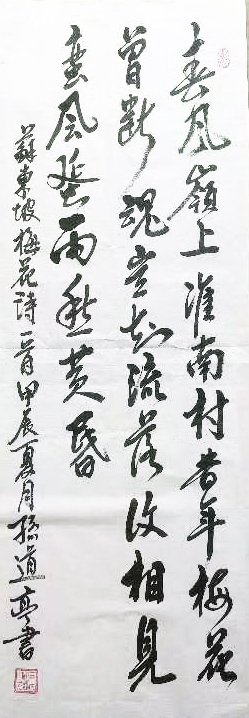 春風嶺上淮南村昔年梅花
曾斷魂豈知流落復相見
蛮風蜑雨愁黄昏
蘇東坡梅花詩一首甲辰夏月孫道亭書